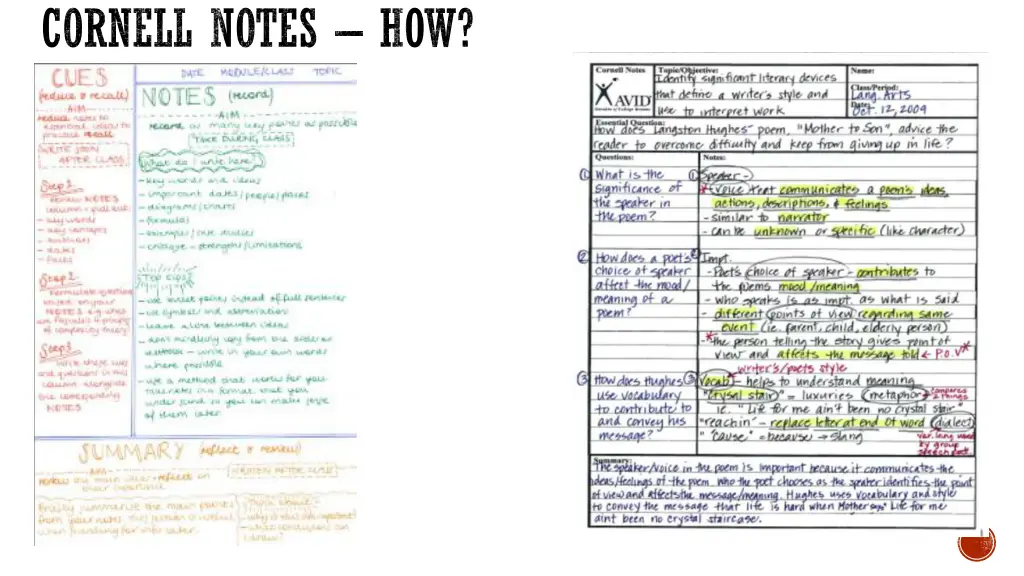 CORNELL NOTES – HOW?
CUES
(reduce & recall)
AIM
reduce notes to
essential ideas to
practice recall
WRITE SOON
AFTER CLASS
Step 1
Review NOTES
column + pull out:
- key words
- key concepts
- dates
- facts
Step 2
Formulate questions
based on your
NOTES e.g. what
Step 3
Write these cues
and questions in this
column alongside
the corresponding
NOTES
DATE MODULE/CLASS TOPIC
NOTES (record)
AIM
record as many key points as possible
TAKE DURING CLASS
What do I write here?
- key words and ideas
- important dates/people/places
- diagrams/charts
- formulas
- examples/case studies
- critique - strengths/limitations
Top tips
- use bullet points instead of full sentences
- use symbols and abbreviations
- leave a line between ideas
- don't mindlessly copy from the slides or
textbook - write in your own words
where possible
- use a method that works for you
take notes in a format that you
understand so you can make sense
of them later
SUMMARY (reflect & review)
AIM
WRITTEN AFTER CLASS
review the main ideas + reflect on
their importance
Briefly summarise the main points
from your notes. This section is useful
when searching for info later.
Think about:
- why is this info important?
- what conclusions can
I draw?
Cornell Notes
AVID
Topic/Objective:
Identify significant literary devices
that define a writer's style and
use to interpret work.
Name:
Class/Period:
Lang. Arts
Date:
Oct. 12, 2009
Essential Question:
How does Langston Hughes' poem, "Mother to Son", advice the
reader to overcome difficulty and keep from giving up in life?
Questions:
① What is the
significance of
the speaker in
the poem?
② How does a poet's
choice of speaker
affect the mood/
meaning of a
poem?
③ How does Hughes
use vocabulary
to contribute to
and convey his
message?
Notes:
① Speaker -
* voice that communicates a poem's ideas,
actions, descriptions, & feelings
- similar to narrator
- can be unknown or specific (like character)
② Impt.
- Poet's choice of speaker - contributes to
the poems mood/meaning
- who speaks is as impt. as what is said
- different points of view regarding same
event (ie. parent, child, elderly person)
-* the person telling the story gives point of
view and affects the message told ← P.O.V*
writer's/poets style
③ Vocab - helps to understand meaning
"Crysal stair" = luxuries (metaphor) compares 2 things
ie. "Life for me ain't been no crystal stair"
"reachin" - replace letter at end of word (dialect)
"'cause" = because → slang
var. lang. used
by group
speech pat.
Summary:
The speaker/voice in the poem is important because it communicates the
ideas/feelings of the poem. Who the poet chooses as the speaker identifies the point
of view and affects the message/meaning. Hughes uses vocabulary and style
to convey the message that life is hard when Mother says "Life for me
aint been no crystal staircase.